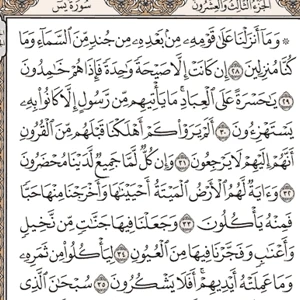 الجزء الثالث والعشرون سورة يس
۞ وَمَا أَنزَلْنَا عَلَىٰ قَوْمِهِ مِن بَعْدِهِ مِن جُندٍ مِّنَ السَّمَاءِ وَمَا
كُنَّا مُنزِلِينَ ٢٨ إِن كَانَتْ إِلَّا صَيْحَةً وَاحِدَةً فَإِذَا هُمْ خَامِدُونَ
٢٩ يَا حَسْرَةً عَلَى الْعِبَادِ مَا يَأْتِيهِم مِّن رَّسُولٍ إِلَّا كَانُوا بِهِ
يَسْتَهْزِءُونَ ٣٠ أَلَمْ يَرَوْا كَمْ أَهْلَكْنَا قَبْلَهُم مِّنَ الْقُرُونِ
أَنَّهُمْ إِلَيْهِمْ لَا يَرْجِعُونَ ٣١ وَإِن كُلٌّ لَّمَّا جَمِيعٌ لَّدَيْنَا مُحْضَرُونَ
٣٢ وَءَايَةٌ لَّهُمُ الْأَرْضُ الْمَيْتَةُ أَحْيَيْنَاهَا وَأَخْرَجْنَا مِنْهَا حَبًّا
فَمِنْهُ يَأْكُلُونَ ٣٣ وَجَعَلْنَا فِيهَا جَنَّاتٍ مِّن نَّخِيلٍ
وَأَعْنَابٍ وَفَجَّرْنَا فِيهَا مِنَ الْعُيُونِ ٣٤ لِيَأْكُلُوا مِن ثَمَرِهِ
وَمَا عَمِلَتْهُ أَيْدِيهِمْ أَفَلَا يَشْكُرُونَ ٣٥ سُبْحَانَ الَّذِي